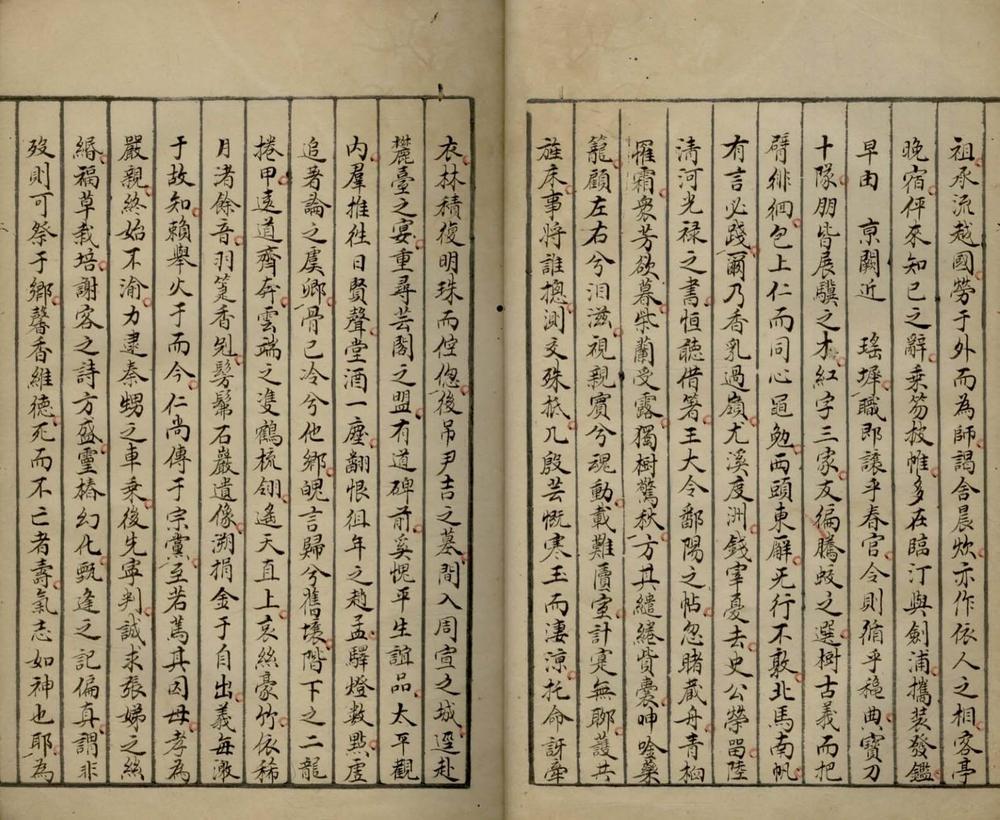 祖承流越國勞于外而為師謁舍晨炊亦作依人之相客亭
晚宿伻來知己之辭乗笏披帷多在臨汀與劍浦攜裘發鑑
早由 京闕近 瑤墀職即讓乎春官今則循乎穐典寶刀
十隊朋皆展驥之才紅字三家友徧騰蛟之選樹古義而把
臂徘徊包上仁而同心黽勉西頭東廨无行不敦北馬南帆
有言必踐爾乃香乳過嶺尤溪度洲錢宰憂去史公榮畱陸
清河光祿之書恒聽借箸王大令鄱陽之帖忽睹蔵舟青桕
罹霜衆芳欲暮紫蘭受露獨樹驚秋方其繾綣貲囊呻唫藥
籠顧左右兮泪滋視親賓兮魂動載難賣室計寔無聊護共
旌床事將誰摠測交殊抵几殷芸慨寒玉而淒涼托命訝牽
衣林積復明珠而倥傯後吊尹吉之墓間入周宣之城逕赴
麓臺之宴重尋芸閣之盟有道碑前奚愧平生誼品太平觀
内羣推徃日賢聲堂酒一塵翻恨徂年之趙孟驛燈數㸃虗
追著論之虞卿骨已冷兮他鄉魄言歸兮舊壤階下之二龍
捲甲遠道齊奔雲端之隻鶴梳翎遙天直上哀絲豪竹依稀
月渚餘音羽箑香兠髣髴石巖遺像溯捐金于自出義每激
于故知賴舉火于而今仁尚傳于宗黨至若蔫其因母孝為
嚴親終始不渝力逮秦甥之車乗後先寧判誠求張娣之絲
緡福草栽培謝客之詩方盛靈椿幻化甄逢之記偏真謂非
歿則可祭于鄉馨香維德死而不亡者壽氣志如神也耶為